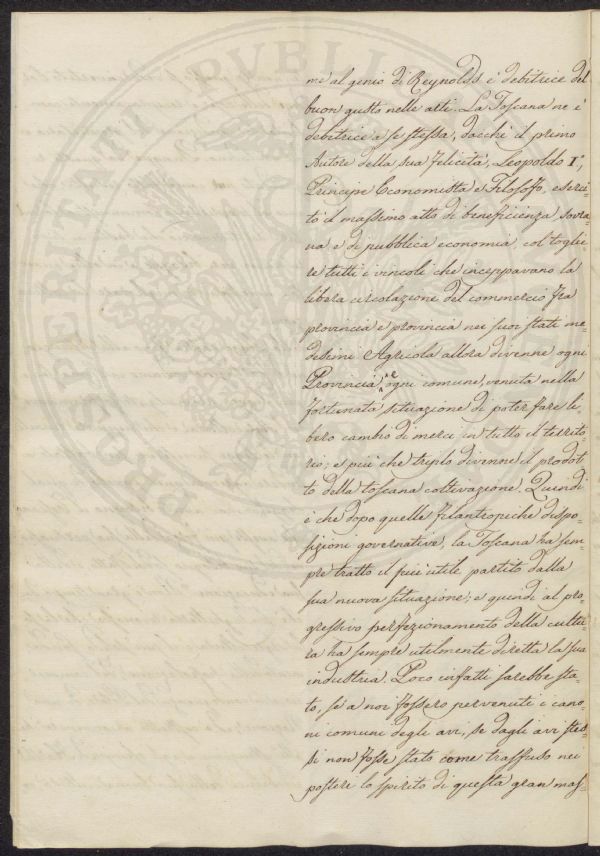 me al genio di Reynolds è debitrice del
buon gusto nelle arti. La Toscana ne è
debitrice a se stessa, dacchè il primo
Autore della sua felicità, Leopoldo I°,
Principe Economista e Filosofo, eserci=
tò il massimo atto di beneficienza sovra=
na e di pubblica economia col toglie
re tutti i vincoli che inceppavano la
libera circolazione del commercio fra
provincia e provincia nei suoi stati me=
desimi Agricola allora divenne ogni
Provincia, e ogni comune, venuta nella
fortunata situazione di poter fare li
bero cambio di merci in tutto il territo=
rio; e più che triplo divenne il prodot
to della toscana coltivazione. Quindi
è che dopo quelle filantropiche dispo=
sizioni governative, la Toscana ha sem
pre tratto il più utile partito dalla
sua nuova situazione; e quindi al pro=
gressivo perfezionamento della cultu=
ra ha sempre utilmente diretta la sua
industria. Poco infatti sarebbe sta=
to, se a noi fossero pervenuti i cano=
ni comuni degli avi, se dagli avi stes=
si non fosse stato come trasfuso nei
posteri lo spirito di questa gran mas=
PROSPERITATI PUBLI